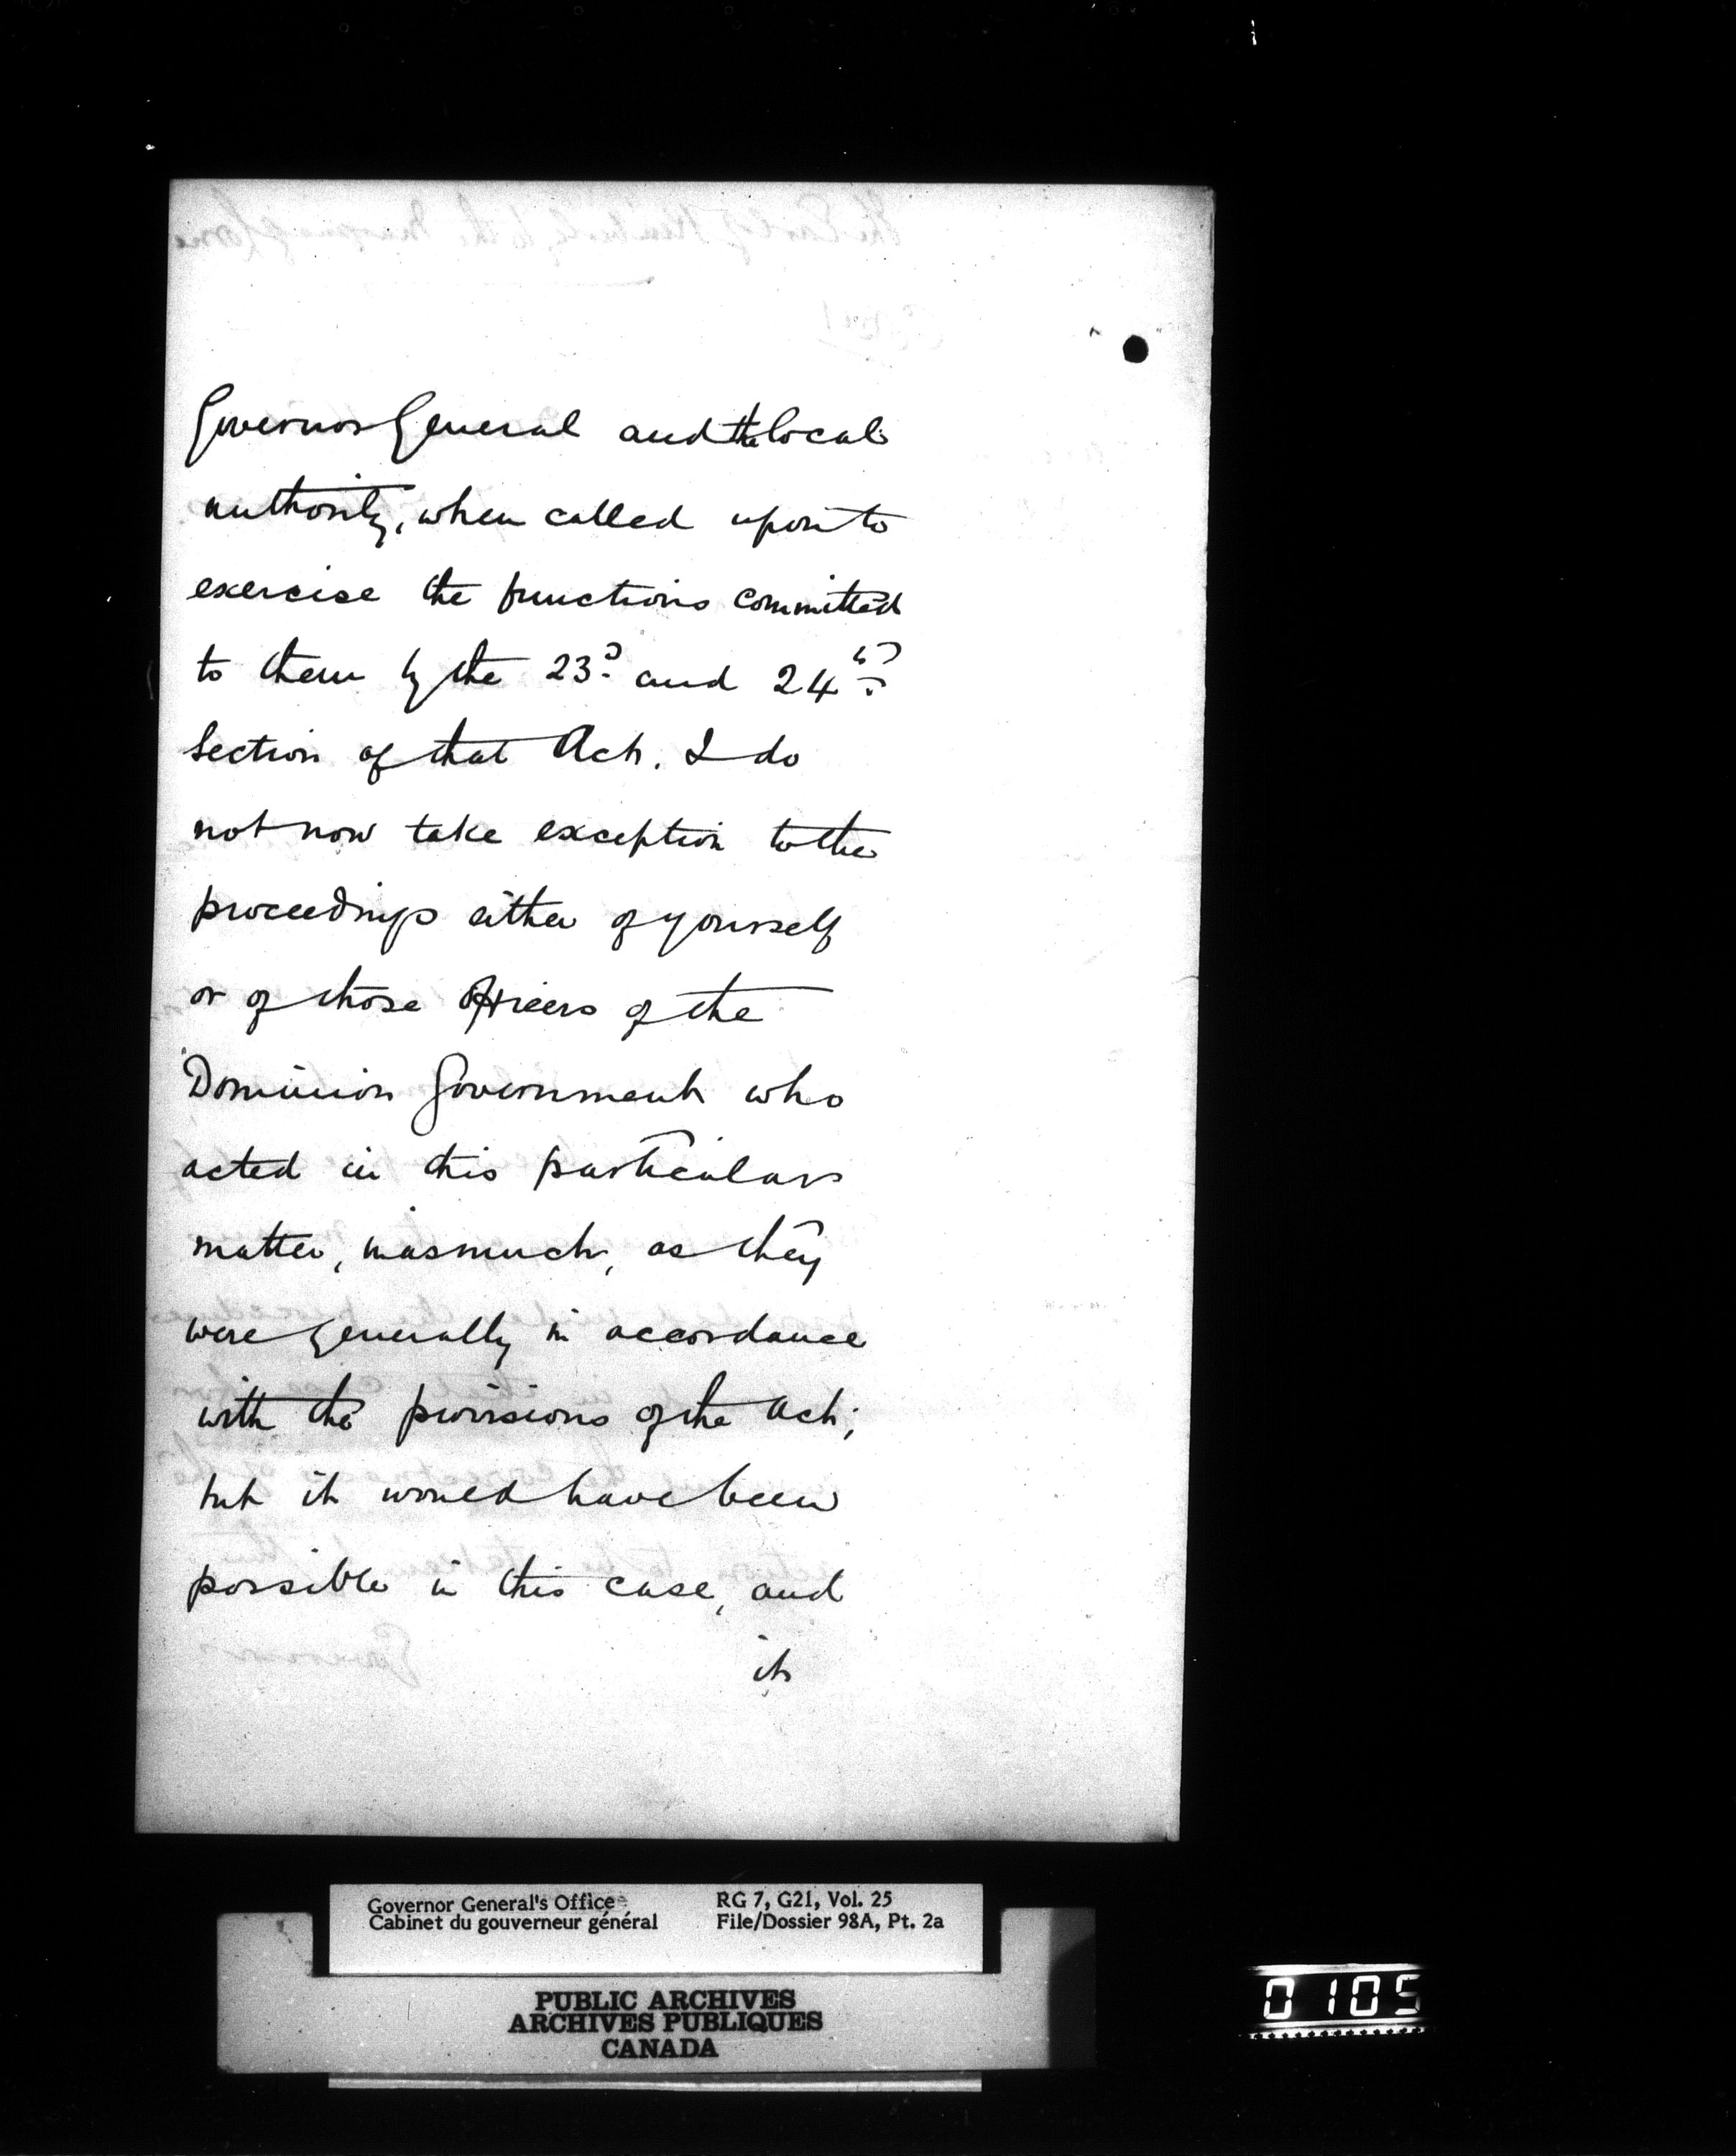 Governor General and the local
authority, when called upon to
exercise the functions committed
to them by the 23d and 24th
Section of that Act. I do
not now take exception to the
proceedings either of yourself
or of those Officers of the
Dominion Government who
acted in this particular
matter, inasmuch, as they
were generally in accordance
with the provisions of the Act;
but it would have been
possible in this case, and
it
Governor General's Office
Cabinet du gouverneur général
RG 7, G21, Vol. 25
File/Dossier 98A, Pt. 2a
PUBLIC ARCHIVES
ARCHIVES PUBLIQUES
CANADA
0105